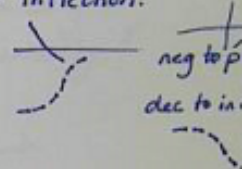 inflection.
neg to p
dec to in